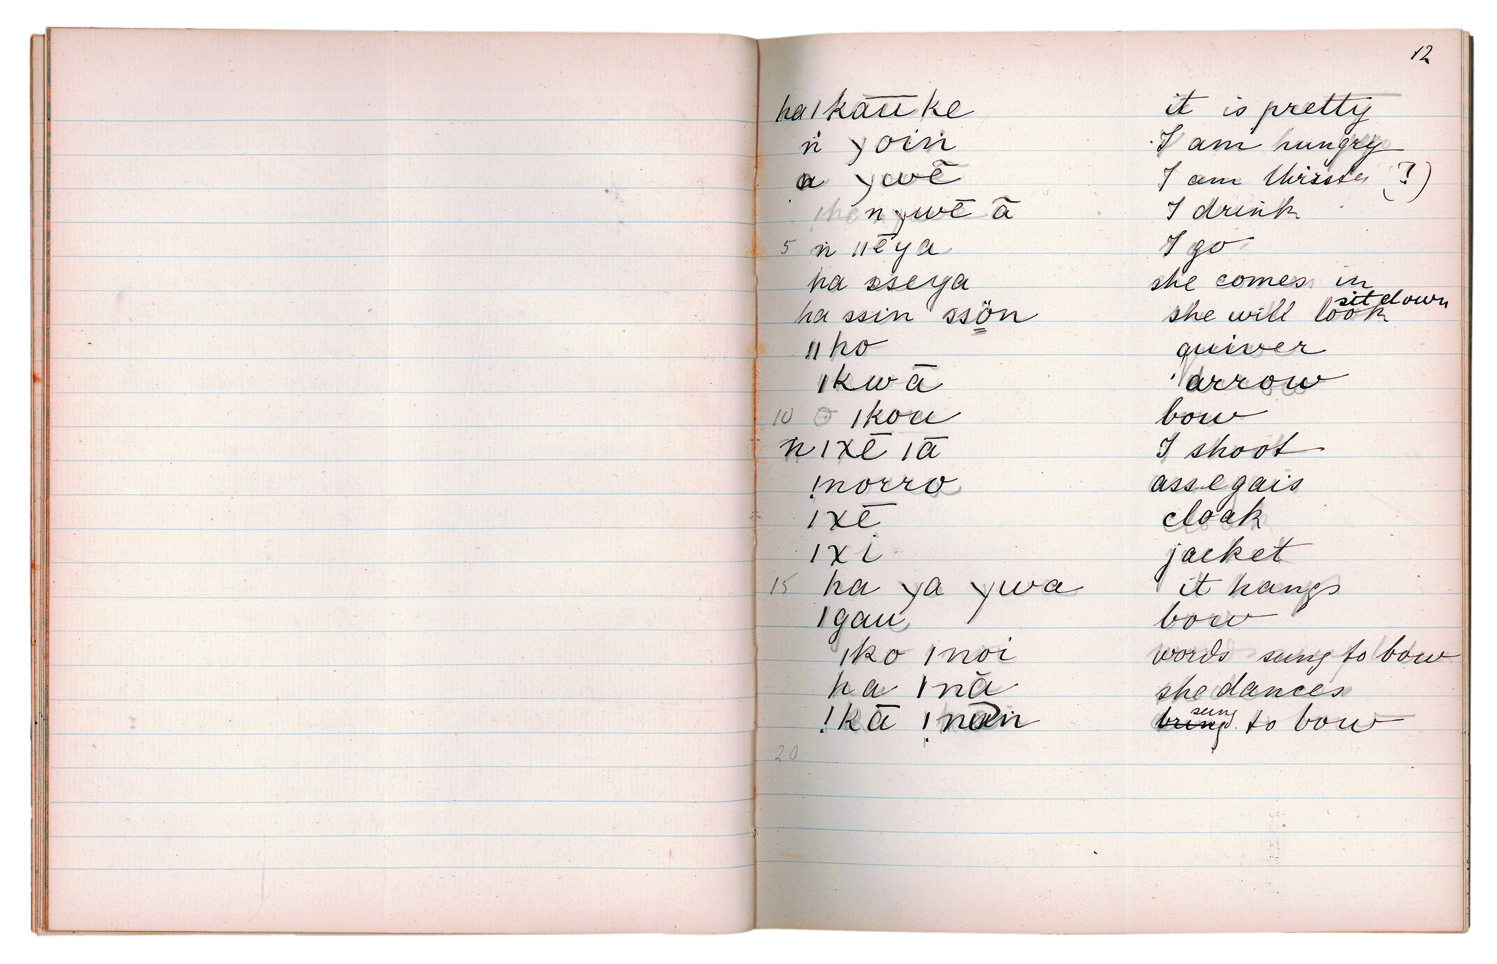 12
ha ǀkāūke it is pretty
n̈ yoin I am hungry
n ywē I am thirsty (?)
n ywē ā I drink
5 n ǁēya I go
ha sseya she comes in
sit down
ha ssin ssön she will look
ǁho quiver
ǀkwā arrow
10 ǀkou bow
n ǀxē ǀā I shoot
!norro assegais
ǀxē cloak
ǀxi jacket
15 ha ya ywa it hangs
ǀgau bow
ǀko ǀnoi words sung to bow
ha ǀnā she dances
sung
!kā to bow
20